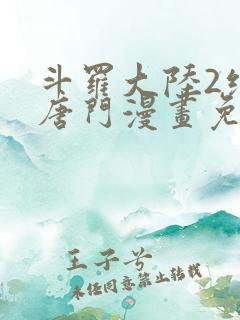 斗罗大陸2
唐門漫畫免
王子兮
未经同意禁止转载